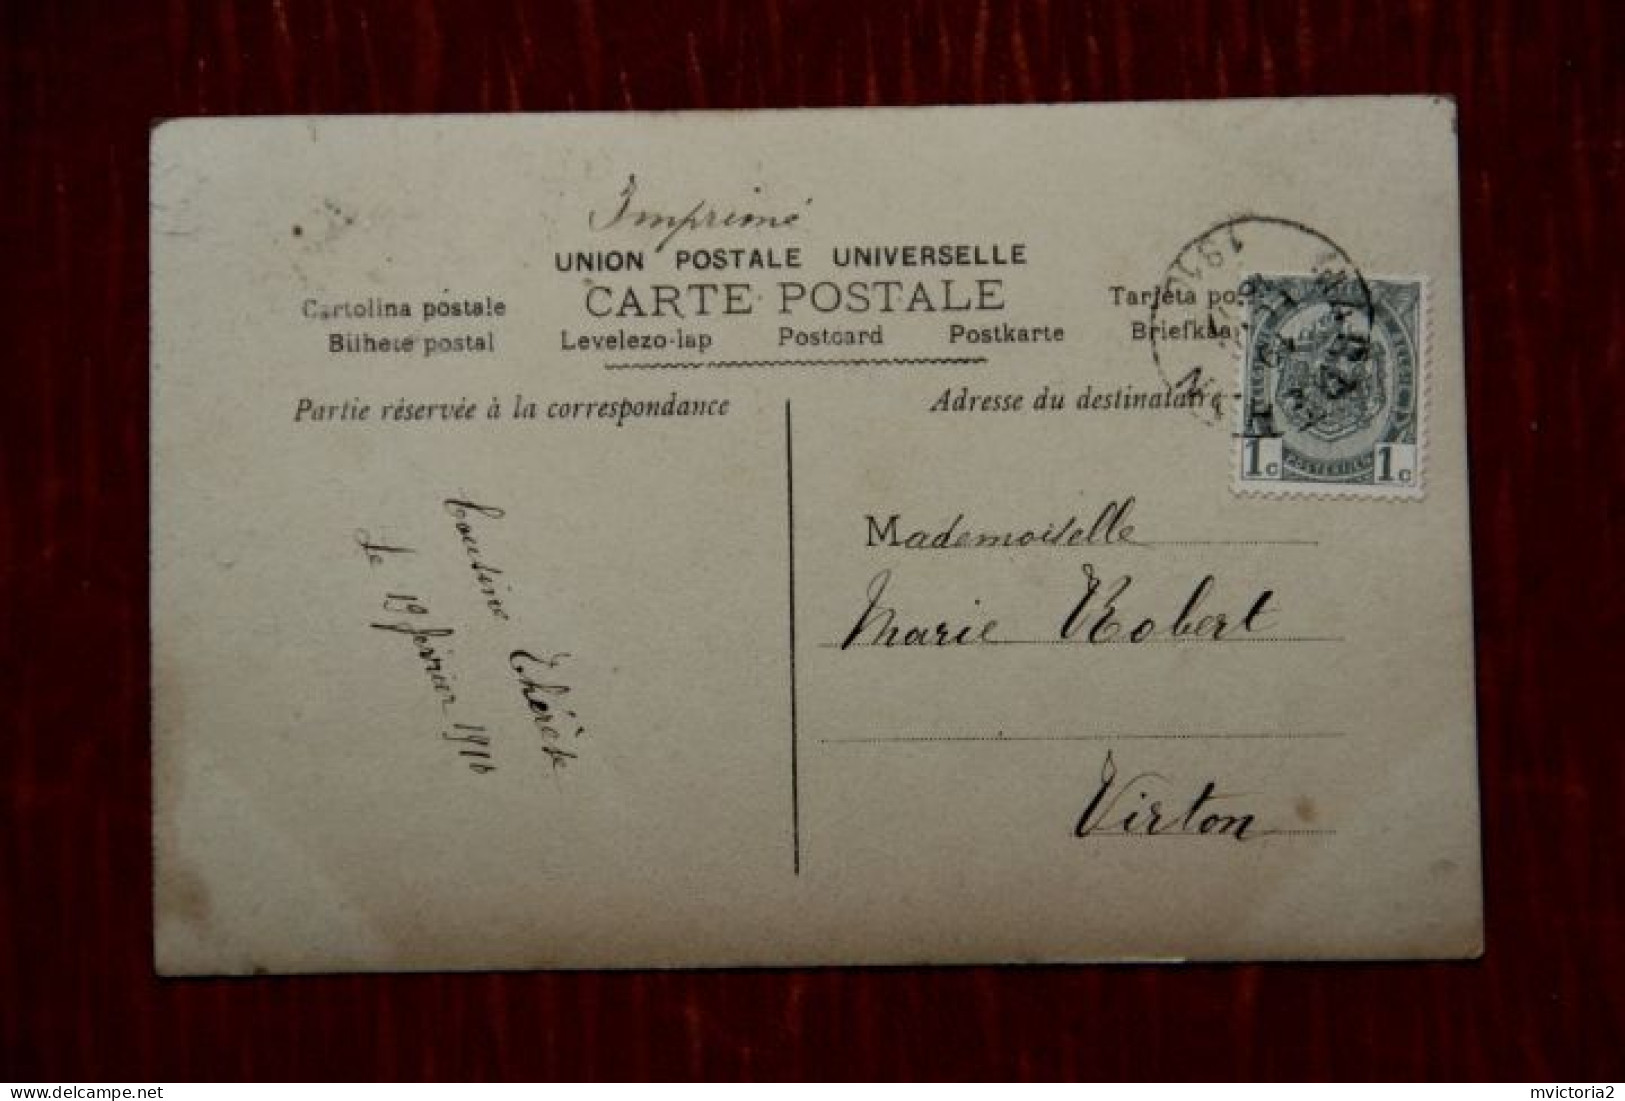 Imprimé
UNION POSTALE UNIVERSELLE
CARTE POSTALE
Cartolina postale
Tarjeta po
Bilhete postal
Levelezo-lap
Postcard
Postkarte
Briefkaa
Partie réservée à la correspondance
Adresse du destinataire
1910
1c
POSTERIJEN
1c
Cousine Thérèse
Le 19 février 1910
Mademoiselle
Marie Robert
Virton
mvictoria2